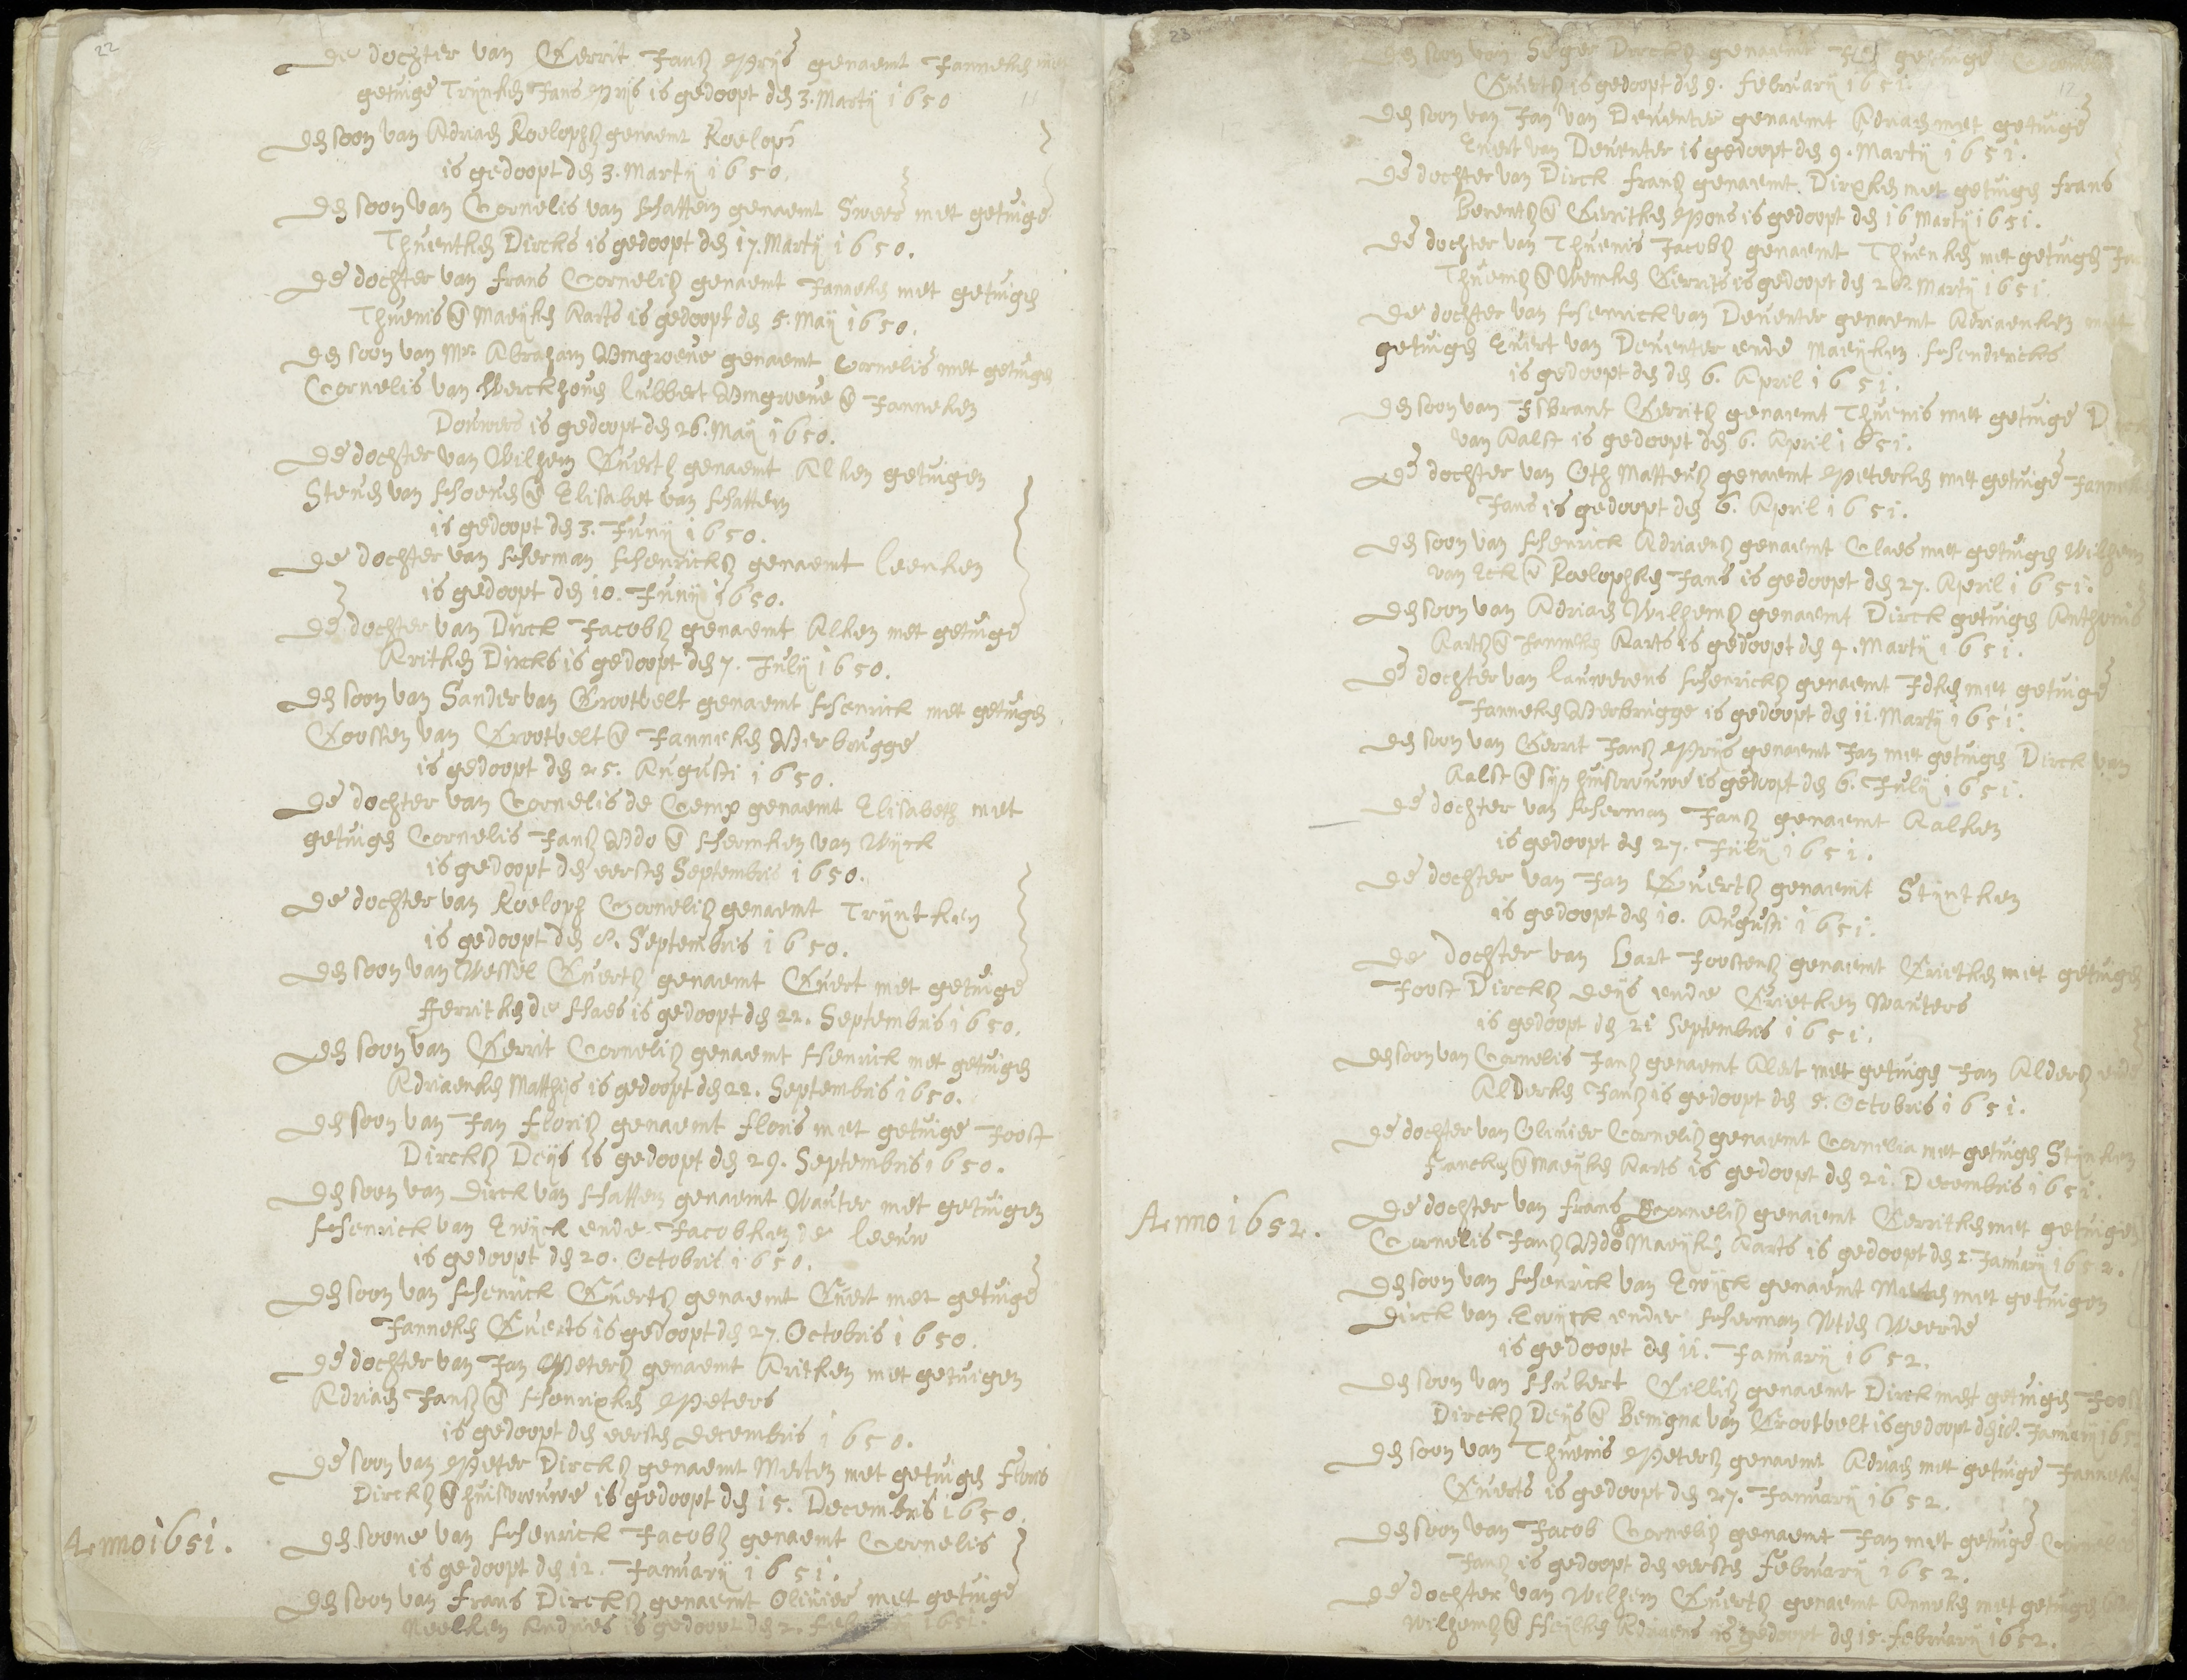 22
De dochter van Gerrit Jansz Prijs genaemt Janneken met
getuige Trijnken Jans Prijs is gedoopt den 3. Martij 1650
11
Den soon van Adriaen Roelophsz genaemt Roeloph
is gedoopt den 3. Martij 1650.
Den soon van Cornelis van Hattem genaemt Sweer met getuige
Thuentken Dircks is gedoopt den 17. Martij 1650.
De dochter van Frans Cornelisz genaemt Janneken met getuigen
Thuenis @ Maeijken Aarts is gedoopt den 5. Maij 1650.
Den soon van Mr. Abraham Wingroene genaemt Cornelis met getuigen
Cornelis van Werckhoven Lubbert Wingroene @ Janneken
Douwers is gedoopt den 26. Maij 1650.
De dochter van Wilhem Evertz genaemt Alken getuigen
Steven van Hoeven @ Elisabet van Hattem
is gedoopt den 3. Junij 1650.
De dochter van Herman Henricksz genaemt Leenken
is gedoopt den 10. Junij 1650.
De dochter van Dirck Jacobsz genaemt Alken met getuige
Aritken Dircks is gedoopt den 7. Julij 1650.
Den soon van Sander van Grootvelt genaemt Henrick met getuigen
Goossen van Grootvelt @ Janneken Verbrugge
is gedoopt den 25. Augusti 1650.
De dochter van Cornelis de Gemp genaemt Elisabeth met
getuigen Cornelis Jansz Vdo @ Hermken van Wijck
is gedoopt den eersten Septembris 1650.
De dochter van Roeloph Cornelisz genaemt Trijntken
is gedoopt den 8. Septembris 1650.
Den soon van Wessel Evertz genaemt Evert met getuige
Gerritken de Haes is gedoopt den 22. Septembris 1650.
Den soon van Gerrit Cornelisz genaemt Henrick met getuigen
Adriaenken Matthijs is gedoopt den 22. Septembris 1650.
Den soon van Jan Florisz genaemt Floris met getuige Joost
Dircksz Deijs is gedoopt den 29. Septembris 1650.
Den soon van Dirck van Hattem genaemt Wauter met getuigen
Henrick van Ewijck ende Jacobken de Leeuw
is gedoopt den 20. Octobris 1650.
Den soon van Henrick Evertsz genaemt Evert met getuige
Janneken Everts is gedoopt den 27. Octobris 1650.
De dochter van Jan Petersz genaemt Aritken met getuigen
Adriaen Jansz @ Henrixken Peters
is gedoopt den eersten Decembris 1650.
De soon van Peter Dircksz genaemt Merten met getuigen Floris
Dircksz @ huisvrouwe is gedoopt den 15. Decembris 1650.
Anno 1651.
Den soone van Henrick Jacobsz genaemt Cornelis
is gedoopt den 12. Januarij 1651.
Den soon van Frans Dircksz genaemt Olivier met getuige
Neelken Andries is gedoopt den 2. Februarij 1651.
23
Den soon van Seger Dircksz genaemt getuige
Evertsz is gedoopt den 9. Februarij 1651.
12
Den soon van Jan van Deventer genaemt Adriaen met getuige
Evert van Deventer is gedoopt den 9. Martij 1651.
De dochter van Dirck Fransz genaemt Dirxken met getuigen Frans
Berentsz @ Gerritken Pons is gedoopt den 16 Martij 1651.
De dochter van Thuenis Jacobsz genaemt Thuenken met getuigen
Thuenisz @ Wemken Gerrits is gedoopt den Martij 1651.
De dochter van Henrick van Deventer genaemt Adriaenken met
getuigen Evert van Deventer ende Maeijken Hendericks
is gedoopt den den 6. April 1651.
Den soon van Isbrant Gerritsz genaemt Thuenis met getuige
van Aalst is gedoopt den 6. April 1651.
De dochter van Oth Matteusz genaemt Peterken met getuige Janneken
Jans is gedoopt den 6. April 1651.
Den soon van Henrick Adriaensz genaemt Claes met getuigen Wilhem
van Eck @ Roelophken Jans is gedoopt den 27. April 1651.
Den soon van Adriaen Wilhemsz genaemt Dirck getuigen Anthonis
Aartsz @ Janneken Aarts is gedoopt den 4. Martij 1651.
De dochter van Lauwerens Henricksz genaemt Idken met getuige
Janneken Verbrugge is gedoopt den 11. Martij 1651.
Den soon van Gerrit Jansz Prijs genaemt Jan met getuigen Dirck van
Aalst @ sijn huisvrouwe is gedoopt den 6. Julij 1651.
De dochter van Herman Jansz genaemt Aalken
is gedoopt den 27. Julij 1651.
De dochter van Jan Evertsz genaemt Stijntken
is gedoopt den 10. Augusti 1651.
De dochter van Bart Joostensz genaemt Grietken met getuigen
Joost Dircksz Deijs ende Grietken Wauters
is gedoopt den 21 Septembris 1651.
Den soon van Cornelis Jansz genaemt Alert met getuigen Jan Aldersz ende
Alderken Jansz is gedoopt den 5. Octobris 1651.
De dochter van Olivier Cornelisz genaemt Cornelia met getuigen Stijnken
Francken @ Maeijken Aarts is gedoopt den 21. Decembris 1651.
Anno 1652.
De dochter van Frans Cornelisz genaemt Gerritken met getuigen
Cornelis Jansz Vdo Maeijken Aarts is gedoopt den 1. Januarij 1652.
Den soon van Henrick van Ewijck genaemt Merten met getuigen
Dirck van Ewijck ende Herman Wtden Weerde
is gedoopt den 11. Januarij 1652.
Den soon van Hubert Gillisz genaemt Dirck met getuigen Joost
Dircksz Deijs @ Benigna van Grootvelt is gedoopt den 18. Januarij 1652
Den soon van Thuenis Petersz genaemt Adriaen met getuige Janneken
Everts is gedoopt den 27. Januarij 1652.
Den soon van Jacob Cornelisz genaemt Jan met getuige Cornelis
Jansz is gedoopt den eersten Februarij 1652.
De dochter van Wilhem Evertsz genaemt Anneken met getuigen
Wilhemsz @ Heijlken Adriaens is gedoopt den 15. Februarij 1652.